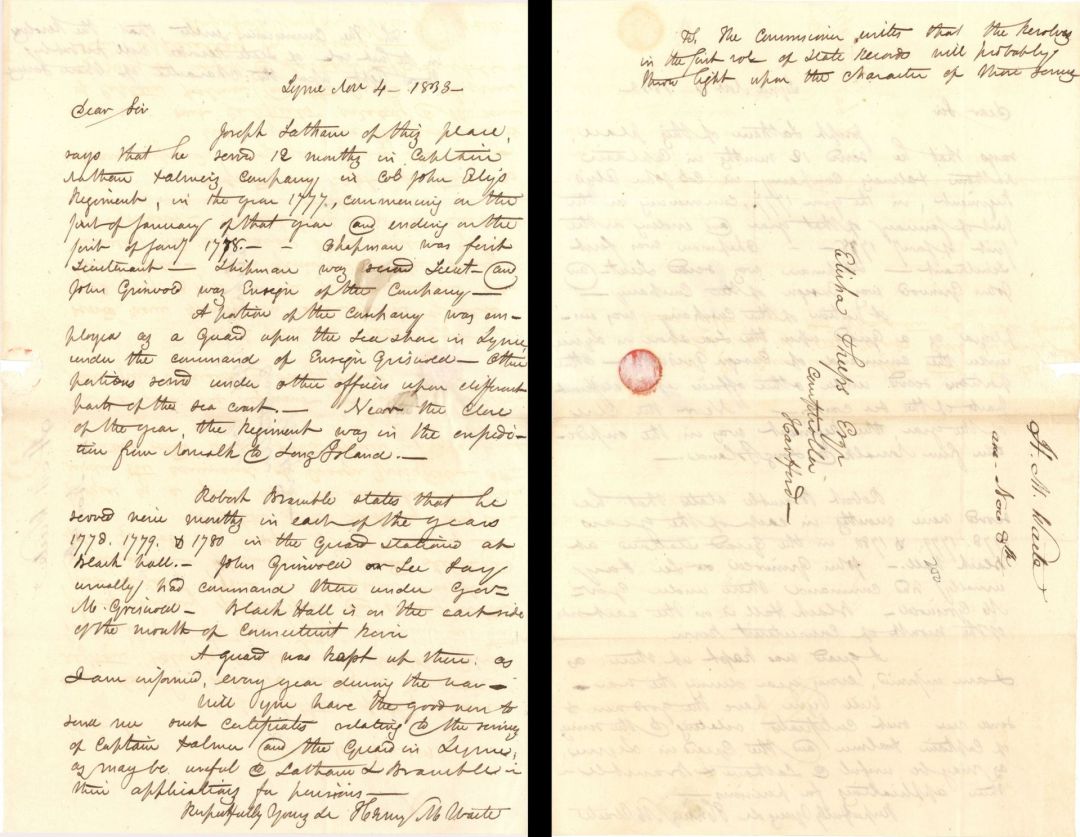 Lyme Nov 4 - 1833 -
Dear Sir
Joseph Latham of this place,
says that he served 12 months in Captain
Nathan Palmers company in Col John Elys
Regiment, in the year 1777, commencing on the
first of January of that year and ending on the
first of Jany 1778. - - Chapman was first
Lieutenant - Shipman was second Lieut - and
John Griswold was Ensign of the Company -
A portion of the company was em-
ployed as a Guard upon the Sea shore in Lyme
under the command of Ensign Griswold - Other
portions served under other officers upon different
parts of the sea coast. - Near the close
of the year, the Regiment was in the expedi-
tion from Norwalk to Long Island. -
Robert Bramble states that he
served nine months in each of the years
1778. 1779. & 1780 in the Guard stationed at
Black hall. - John Griswold or Lee Lay
usually had command there under Gov-
M. Griswold - Black Hall is on the east side
of the mouth of Connecticut River
A guard was kept up there, as
I am informed, every year during the war -
Will you have the goodness to
send me such certificates relating to the service
of Captain Palmer and the Guard in Lyme,
as may be useful to Latham & Bramble in
their applications for pensions -
Respectfully Yours &c Henry M Waite
The Commissioner writes that the Resolves
in the first vol of State Records will probably
throw light upon the character of their service
Elisha Phelps Esqr
Comptroller
Hartford -
H. M. Waite
ans - Nov 8th